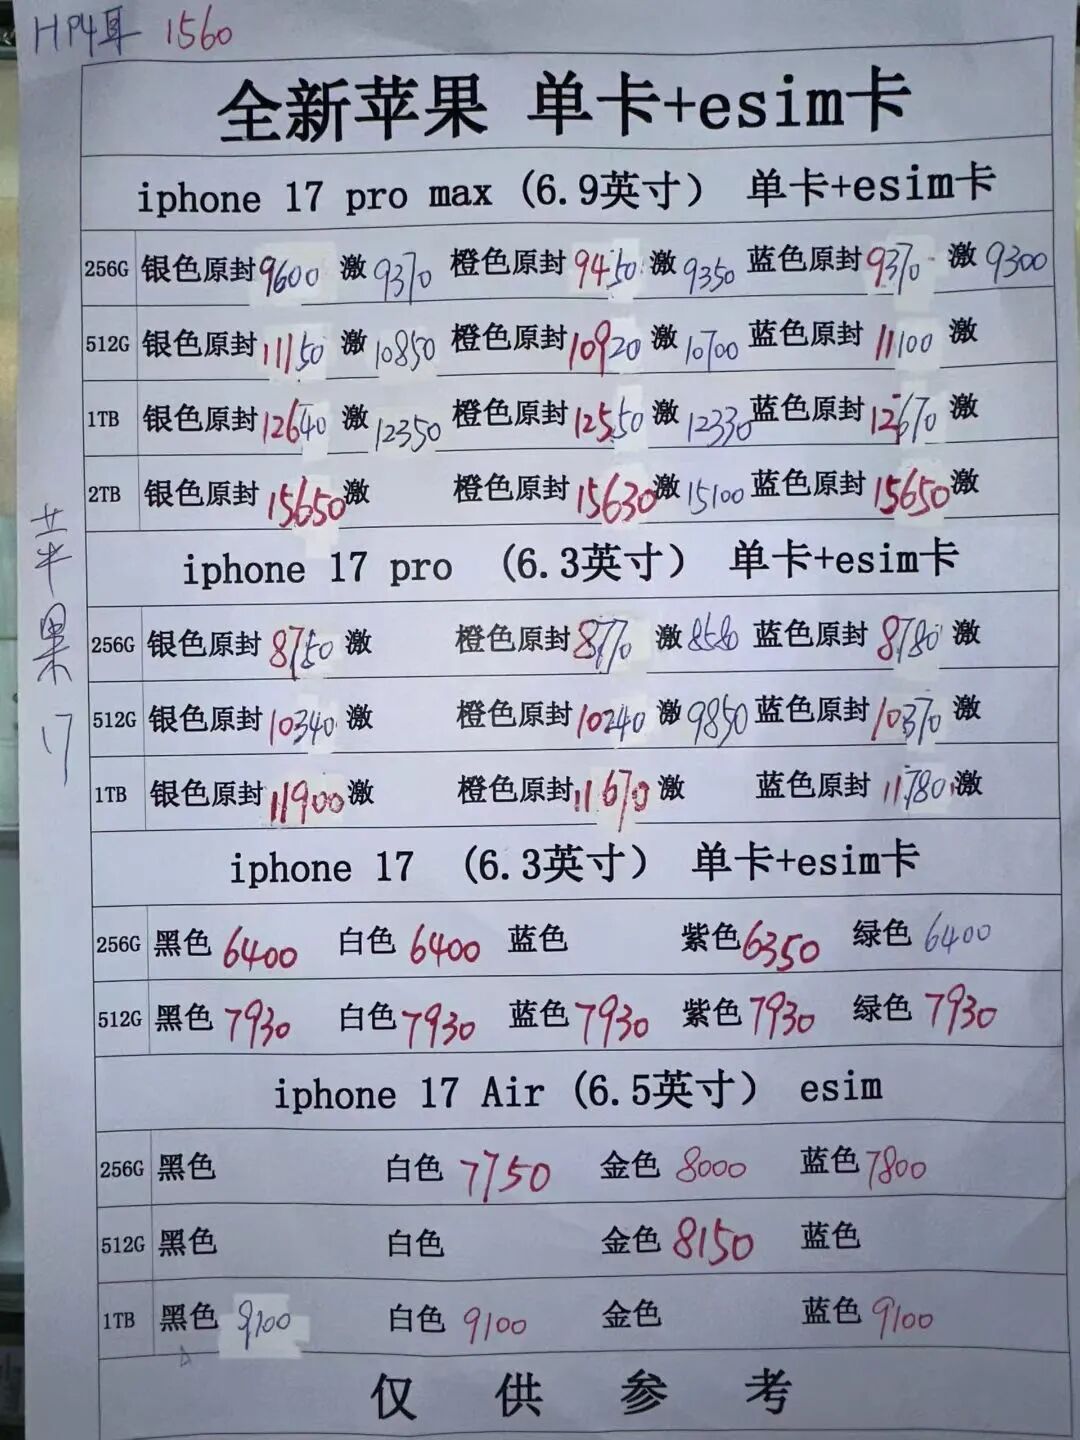 HP4耳 1560
全新苹果 单卡+esim卡
iphone 17 pro max (6.9英寸) 单卡+esim卡
256G 银色原封 9600 激 9370 橙色原封 9450 激 9350 蓝色原封 9370 激 9300
512G 银色原封 11150 激 10850 橙色原封 10920 激 10700 蓝色原封 11100 激
1TB 银色原封 12640 激 12350 橙色原封 12550 激 12330 蓝色原封 12670 激
2TB 银色原封 15650 激 橙色原封 15630 激 15100 蓝色原封 15650 激
苹果17
iphone 17 pro (6.3英寸) 单卡+esim卡
256G 银色原封 8750 激 橙色原封 8770 激 8580 蓝色原封 8780 激
512G 银色原封 10340 激 橙色原封 10240 激 9850 蓝色原封 10370 激
1TB 银色原封 11900 激 橙色原封 11670 激 蓝色原封 11780 激
iphone 17 (6.3英寸) 单卡+esim卡
256G 黑色 6400 白色 6400 蓝色 紫色 6350 绿色 6400
512G 黑色 7930 白色 7930 蓝色 7930 紫色 7930 绿色 7930
iphone 17 Air (6.5英寸) esim
256G 黑色 白色 7750 金色 8000 蓝色 7800
512G 黑色 白色 金色 8150 蓝色
1TB 黑色 9100 白色 9100 金色 蓝色 9100
仅供参考